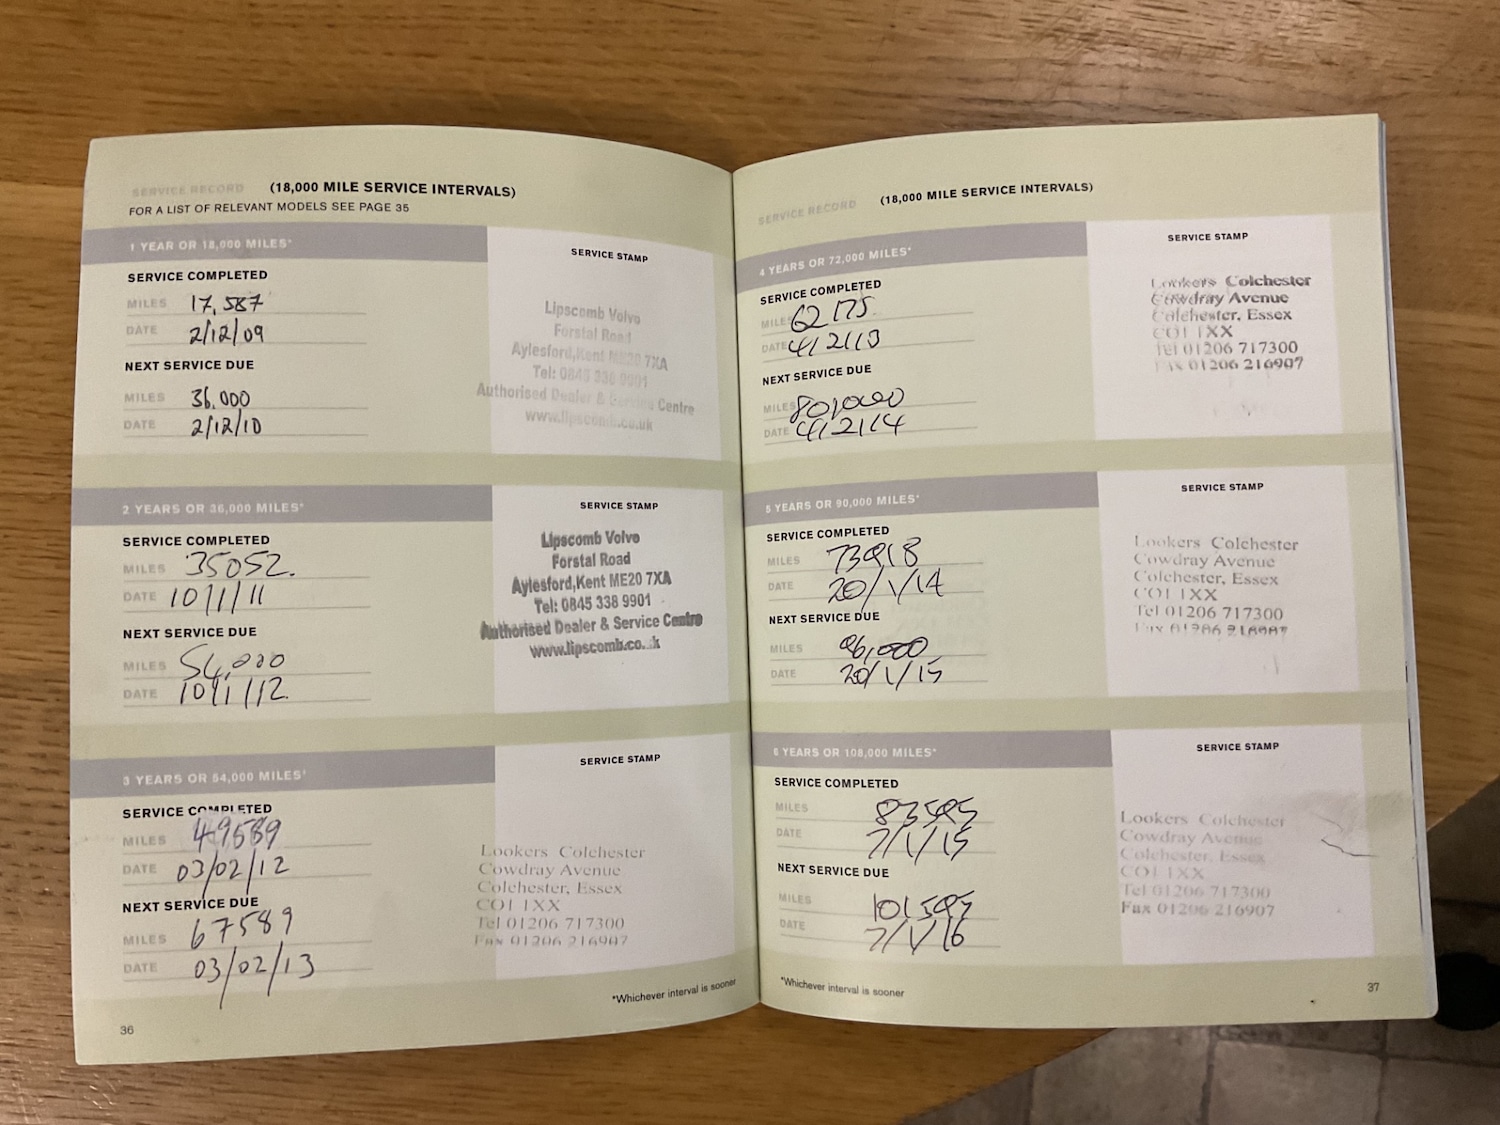 SERVICE RECORD (18,000 MILE SERVICE INTERVALS)
FOR A LIST OF RELEVANT MODELS SEE PAGE 35
1 YEAR OR 18,000 MILES*
SERVICE COMPLETED
MILES 17,587
DATE 2/12/09
NEXT SERVICE DUE
MILES 36,000
DATE 2/12/10
SERVICE STAMP
Lipscomb Volvo
Forstal Road
Aylesford,Kent ME20 7XA
Tel: 0845 338 9901
Authorised Dealer & Service Centre
www.lipscomb.co.uk
2 YEARS OR 36,000 MILES*
SERVICE COMPLETED
MILES 35052.
DATE 10/1/11
NEXT SERVICE DUE
MILES 54,000
DATE 10/1/12.
SERVICE STAMP
Lipscomb Volvo
Forstal Road
Aylesford,Kent ME20 7XA
Tel: 0845 338 9901
Authorised Dealer & Service Centre
www.lipscomb.co.uk
3 YEARS OR 54,000 MILES*
SERVICE COMPLETED
MILES 49589
DATE 03/02/12
NEXT SERVICE DUE
MILES 67589
DATE 03/02/13
SERVICE STAMP
Lookers Colchester
Cowdray Avenue
Colchester, Essex
CO1 1XX
Tel 01206 717300
Fax 01206 216907
*Whichever interval is sooner
36
SERVICE RECORD (18,000 MILE SERVICE INTERVALS)
4 YEARS OR 72,000 MILES*
SERVICE COMPLETED
MILES 62175
DATE 4/2/13
NEXT SERVICE DUE
MILES 80,000
DATE 4/2/14
SERVICE STAMP
Lookers Colchester
Cowdray Avenue
Colchester, Essex
CO1 1XX
Tel 01206 717300
Fax 01206 216907
5 YEARS OR 90,000 MILES*
SERVICE COMPLETED
MILES
DATE 20/1/14
NEXT SERVICE DUE
MILES
DATE 20/1/15
SERVICE STAMP
Lookers Colchester
Cowdray Avenue
Colchester, Essex
CO1 1XX
Tel 01206 717300
Fax 01206 216907
6 YEARS OR 108,000 MILES*
SERVICE COMPLETED
MILES 83595
DATE 7/1/15
NEXT SERVICE DUE
MILES 101595
DATE 7/1/16
SERVICE STAMP
Lookers Colchester
Cowdray Avenue
Colchester, Essex
CO1 1XX
Tel 01206 717300
Fax 01206 216907
*Whichever interval is sooner
37